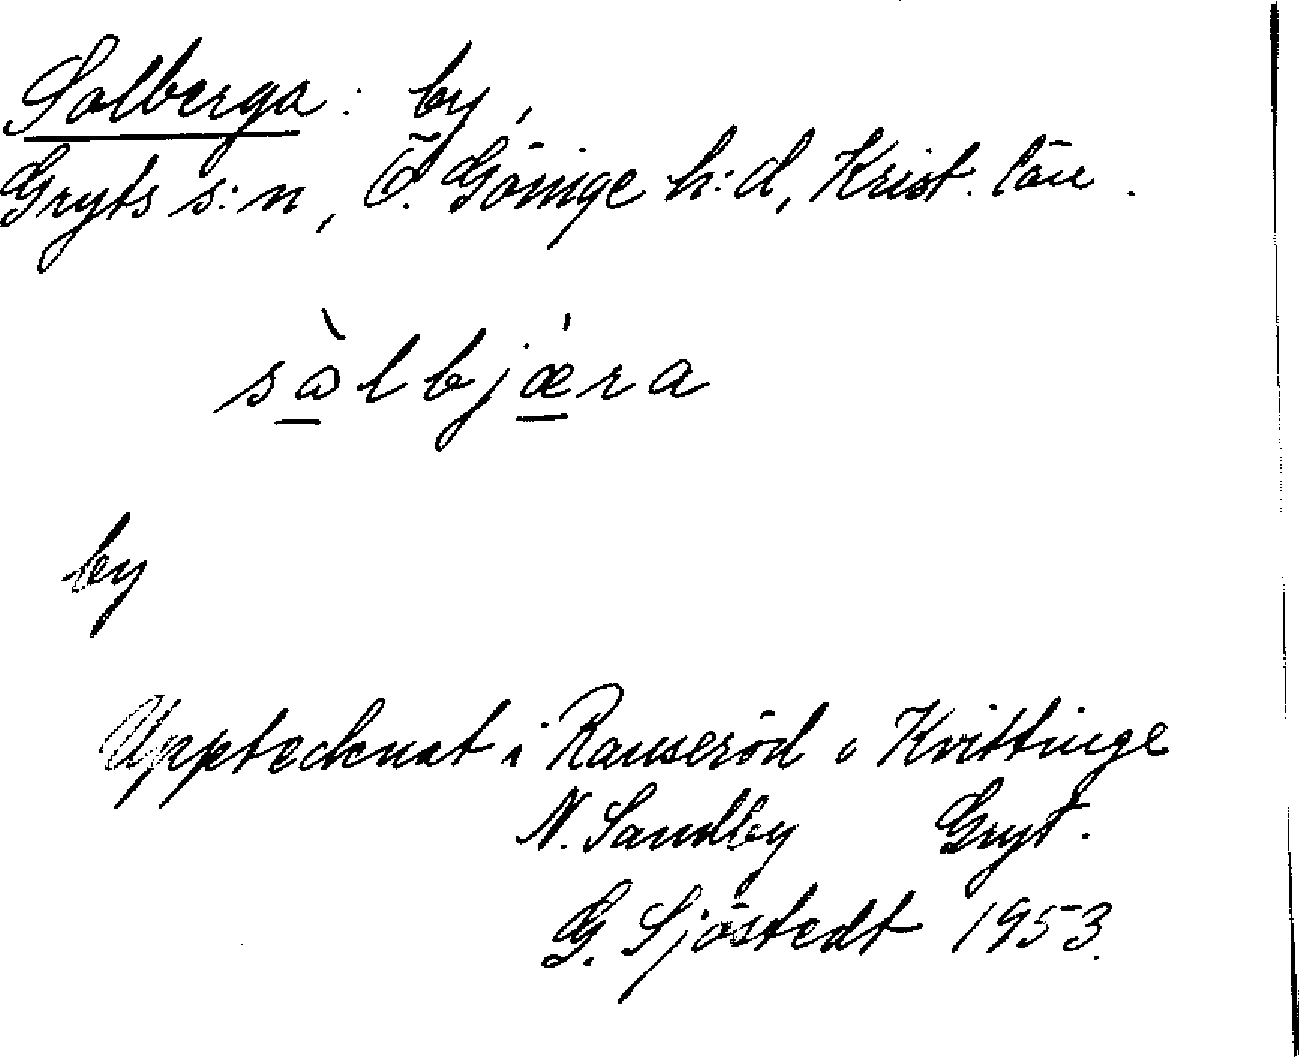 Solberga: by,
Gryts s:n, Ö. Göinge h:d, Krist. län.
sòlbjǽra
by
Upptecknat i Ranseröd o Kvittinge
N. Sandby Gryt.
G. Sjöstedt 1953.